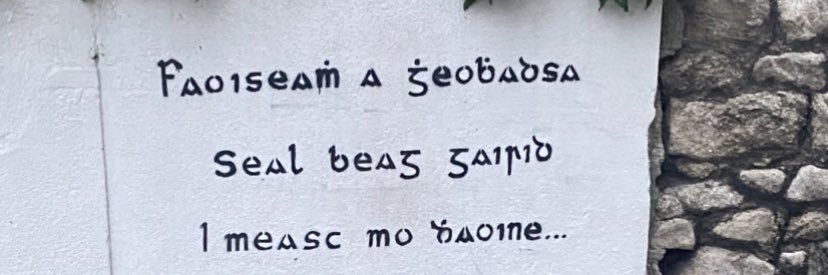 Faoiseaṁ a ġeoḃadsa
Seal beag gairid
I measc mo ḋaoine...